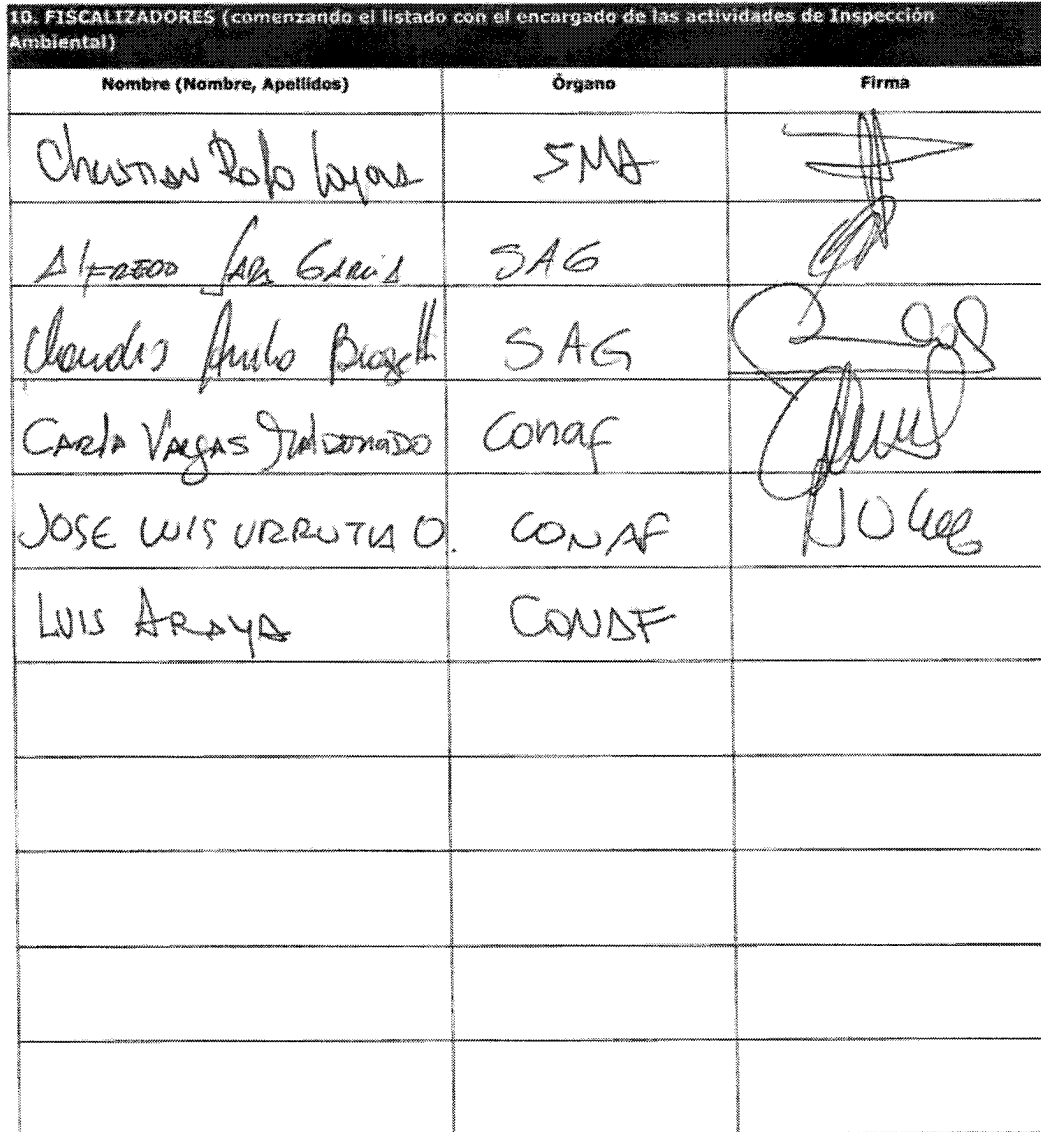 10. FISCALIZADORES (comenzando el listado con el encargado de las actividades de Inspección
Ambiental)
Nombre (Nombre, Apellidos) Órgano Firma
Christian Rojo SMA
Alfredo Jara García SAG
Claudio SAG
Carla Vargas Maldonado Conaf
JOSE LUIS URRUTIA O. CONAF
LUIS ARAYA CONAF